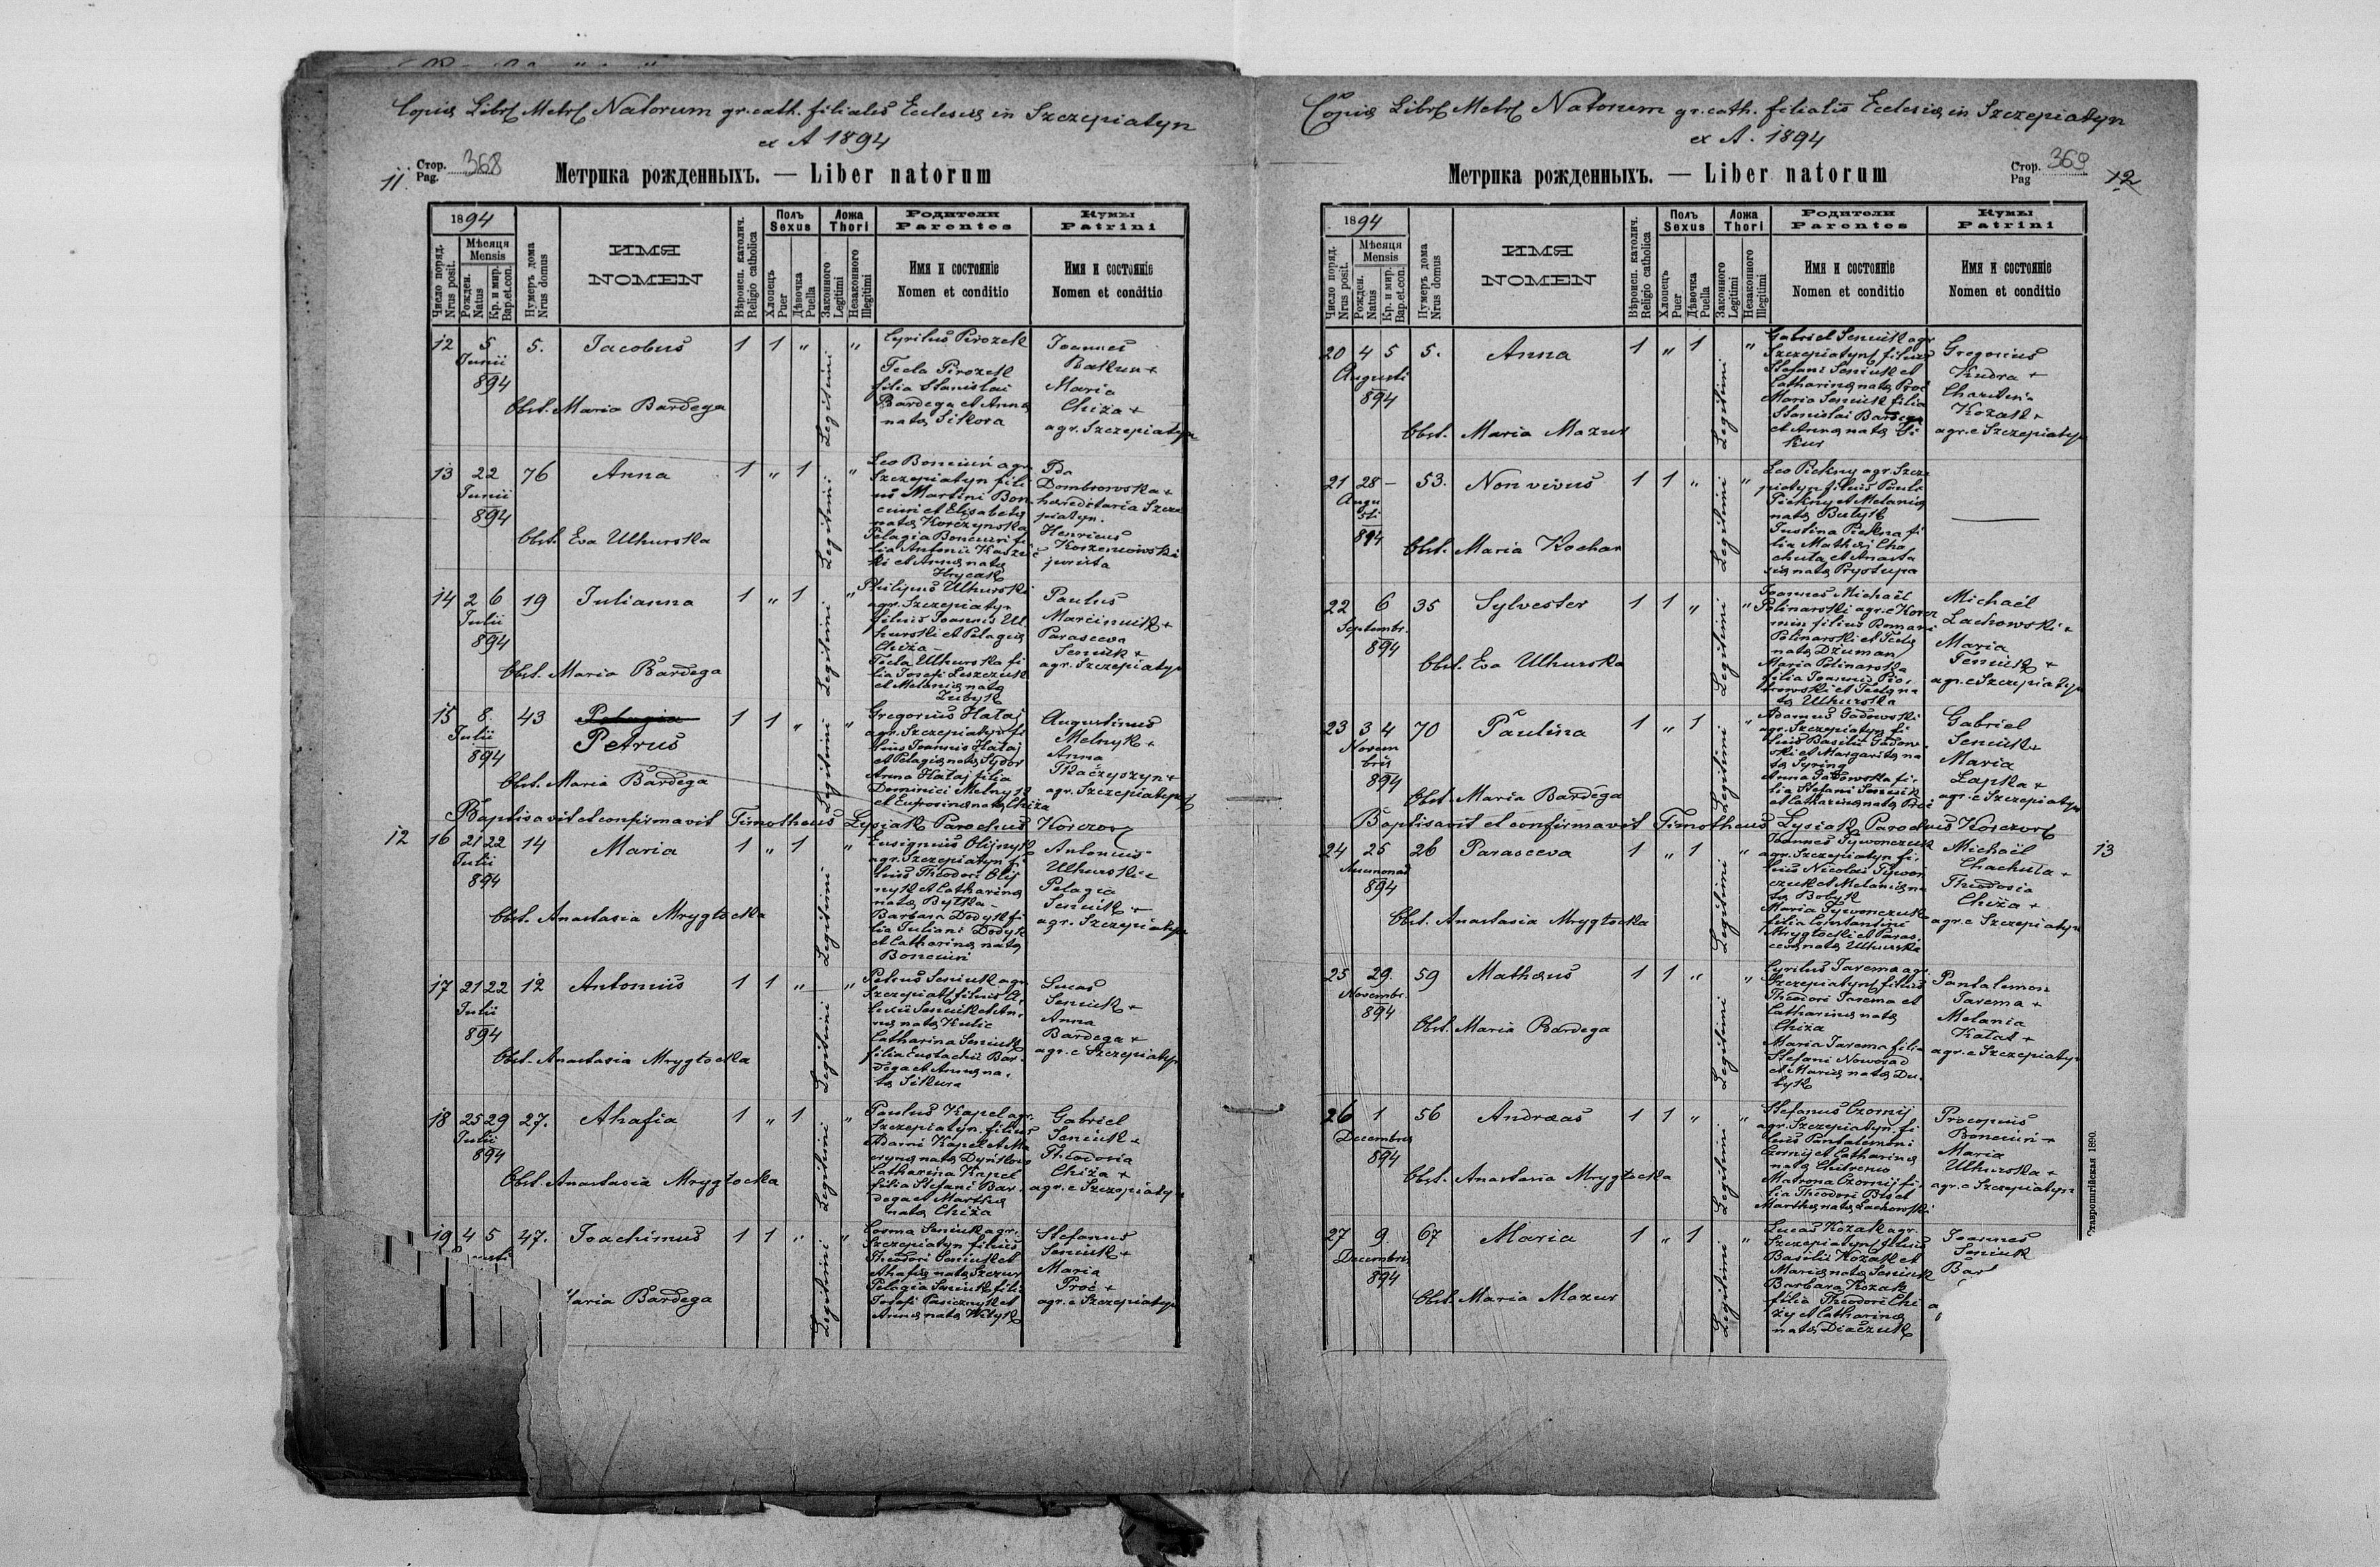 Copia Libr. Metr. Natorum gr. cath. filialis Ecclesiæ in Szczepiatyn
ex A 1894
11. Стор. Pag. 368
Метрика рожденныхъ. — Liber natorum
1894
Число поряд. Nrus posit.
Мѣсяця Mensis
Рожден. Natus
Кр. и мир. Bap.et.con.
Нумеръ дома Nrus domus
ИМЯ
NOMEN
Вѣроисп. католич. Religio catholica
Полъ Sexus
Хлопецъ Puer
Дѣвочка Puella
Ложа Thori
Законного Legitimi
Незаконного Illegitimi
Родители Parentes
Имя и состояніе
Nomen et conditio
Кумы Patrini
Имя и состояніе
Nomen et conditio
12 5 Junii 894 5. Jacobus 1 1 " Legitimi "
Cyrilus Pirozek
Tecla Pirozek
filia Stanislai
Bardega et Anna
nata Sikora
Joannes
Bakun +
Maria
Chiża +
agr. Szczepiatyn
Obst. Maria Bardega
13 22 Junii 894 76 Anna 1 " 1 Legitimi "
Leo Bonciuri agr.
Szczepiatyn fili
us Martini Bon
ciuri et Elisabeta
nata Korczynska
Pelagia Bonciuri fi
lia Antonii
ki et Anna nata
Hrycak
Ida
Dombrowska +
hæreditaria Szcze
piatyn.
Henricus
Korzeniowski
jurista
Obst. Eva Uhurska
14 2 6 Julii 894 19 Julianna 1 " 1 Legitimi "
Philipus Uhurski
agr. Szczepiatyn
filius Joannis U
hurski et Pelagia
Chiża —
Tecla Uhurska fi
lia Josefi Leszczuk
et Melania nata
Zubyk
Paulus
Marciniuk +
Parasceva
Seniuk +
agr. Szczepiatyn
Obst. Maria Bardega
15 8. Julii 894 43 Pelagia
Petrus 1 1 " Legitimi "
Gregorius Hałaj
agr. Szczepiatyn fi
lius Joannis Hałaj
et Pelagia nata Sydor
Anna Hałaj filia
Dominici Melnyk
et Eufrosina nata Chiża
Augustinus
Melnyk +
Anna
Tkaczyszyn +
agr. Szczepiatyn
Obst. Maria Bardega
Baptisavit et confirmavit Timotheus Lysiak Parochus Korczov
12
16 21 22 Julii 894 14 Maria 1 " 1 Legitimi "
Olijnyk
agr. Szczepiatyn fi
lius Theodori Olij
nyk et Catharina
nata Bylka —
Barbara Dodyk fi
lia Juliani Dodyk
et Catharina nata
Bonciuri
Antonius
Uhurski +
Pelagia
Seniuk +
agr. Szczepiatyn
Obst. Anastasia Mrygłocka
17 21 22 Julii 894 12 Antonius 1 1 " Legitimi "
Petrus Seniuk agr.
Szczepiat. filius A
lexii Seniuk et An
na nata Kulic
Catharina Seniuk
filia Eustachii Bar
dega et Anna na
ta Sikura
Lucas
Seniuk +
Anna
Bardega +
agr. e Szczepiatyn
Obst. Anastasia Mrygłocka
18 25 29 Julii 894 27. Ahafia 1 " 1 Legitimi "
Paulus Kapel agr.
Szczepiatyn. filius
Adami Kapel et Ma
nata
Catharina Kapel
filia Stefani Bar
dega et Martha
nata Chiża
Gabriel
Seniuk +
Theodosia
Chiża +
agr. e Szczepiatyn
Obst. Anastasia Mrygłocka
19 4 5 47. Joachimus 1 1 " Legitimi "
Cosma Seniuk agr.
Szczepiatyn filius
Theodori Seniuk et
Ahafia nata Szczur
Pelagia Seniuk fili
Josefi Pasicznyk et
Anna nata
Stefanus
Seniuk +
Maria
Proć +
agr. e Szczepiatyn
aria Bardega
Copia Libr. Metr. Natorum gr. cath. filialis Ecclesiæ in Szczepiatyn
ex A. 1894
Метрика рожденныхъ. — Liber natorum
Стор. Pag 369 12
1894
Число поряд. Nrus posit.
Мѣсяця Mensis
Рожден. Natus
Кр. и мир. Bap.et.con.
Нумеръ дома Nrus domus
ИМЯ
NOMEN
Вѣроисп. католич. Religio catholica
Полъ Sexus
Хлопецъ Puer
Дѣвочка Puella
Ложа Thori
Законного Legitimi
Незаконного Illegitimi
Родители Parentes
Имя и состояніе
Nomen et conditio
Кумы Patrini
Имя и состояніе
Nomen et conditio
20 4 5 Augusti 894 5. Anna 1 " 1 Legitimi "
Gabriel Seniuk agr
Szczepiatyn filius
Stefani Seniuk et
Catharina nata Proć
Maria Seniuk filia
Stanislai Bardega
et Anna nata Si
kur
Gregorius
Kudra +
Charitina
Kozak +
agr. e Szczepiatyn
Obst. Maria Mazur
21 28 — Augusti 894 53. Non vivus 1 1 " Legitimi "
Leo Piekny agr. Szcze
piatyn filius Pauli
Piekny et Melania
nata Butyk
Justina Piekna fi
lia Mathæi Cha
chuta et Anasta
sia nata Prystupa
Obst. Maria Kochan
22 6 Septembr. 894 35 Sylvester 1 1 " Legitimi "
Joannes Michaël
Polinarski agr. e Korcz
min filius Romani
Polinarski et Tecla
nata Dżuman
Maria Polinarska
filia Joannis Pio
trowski et Tecla na
ta Uhurska
Michaël
Lachowski +
Maria
Seniuk +
agr. e Szczepiatyn
Obst. Eva Uhurska
23 3 4 Novembris 894 70 Paulina 1 " 1 Legitimi "
Adamus Gadowski
agr. Szczepiatyn fi
lius Basilii Gadow
ski et Margarita na
ta Syring
Anna Gadowska fi
lia Stefani Seniuk
et Catharina nata Proć
Gabriel
Seniuk +
Maria
Łapka +
agr. e Szczepiatyn
Obst. Maria Bardega
Baptisavit et confirmavit Timotheus Lysiak Parochus Korczov
24 25 894 26 Parasceva 1 " 1 Legitimi "
Joannes Tywonczuk
agr. Szczepiatyn fi
lius Nicolai Tywon
czuk et Melania na
ta Bobyk
Maria Tywonczuk
filia Constantini
Mrygłocki et Paras
ceva nata Uhurska
Michaël
Chachuła +
Theodosia
Chiża +
agr. e Szczepiatyn
13
Obst. Anastasia Mrygłocka
25 29. Novembr. 894 59 Mathæus 1 1 " Legitimi "
Cyrilus Jarema agr.
Szczepiatyn filius
Theodori Jarema et
Catharina nata
Chiża
Maria Jarema filia
Stefani Nowosad
et Maria nata Du
byk
Pantalemon
Jarema +
Melania
Kałat +
agr. e Szczepiatyn
Obst. Maria Bardega
26 1 Decembris 894 56 Andræas 1 1 " Legitimi "
Stefanus Czornij
agr. Szczepiatyn. fi
lius Pantalemoni
Czornij et Catharina
nata
Matrona Czornij fi
lia Theodori Bis et
Martha nata Lachowski
Procopius
Bonciuri +
Maria
Uhurska +
agr. e Szczepiatyn
Obst. Anastasia Mrygłocka
27 9. Decembris 894 67 Maria 1 " 1 Legitimi "
Lucas Kozak agr.
Szczepiatyn filius
Basilii Kozak et
Maria nata Seniuk
Barbara Kozak
filia Theodori Chi
ży et Catharina
nata Diaczuk
Joannes
Seniuk
Obst. Maria Mazur
Ставропигійская 1890.